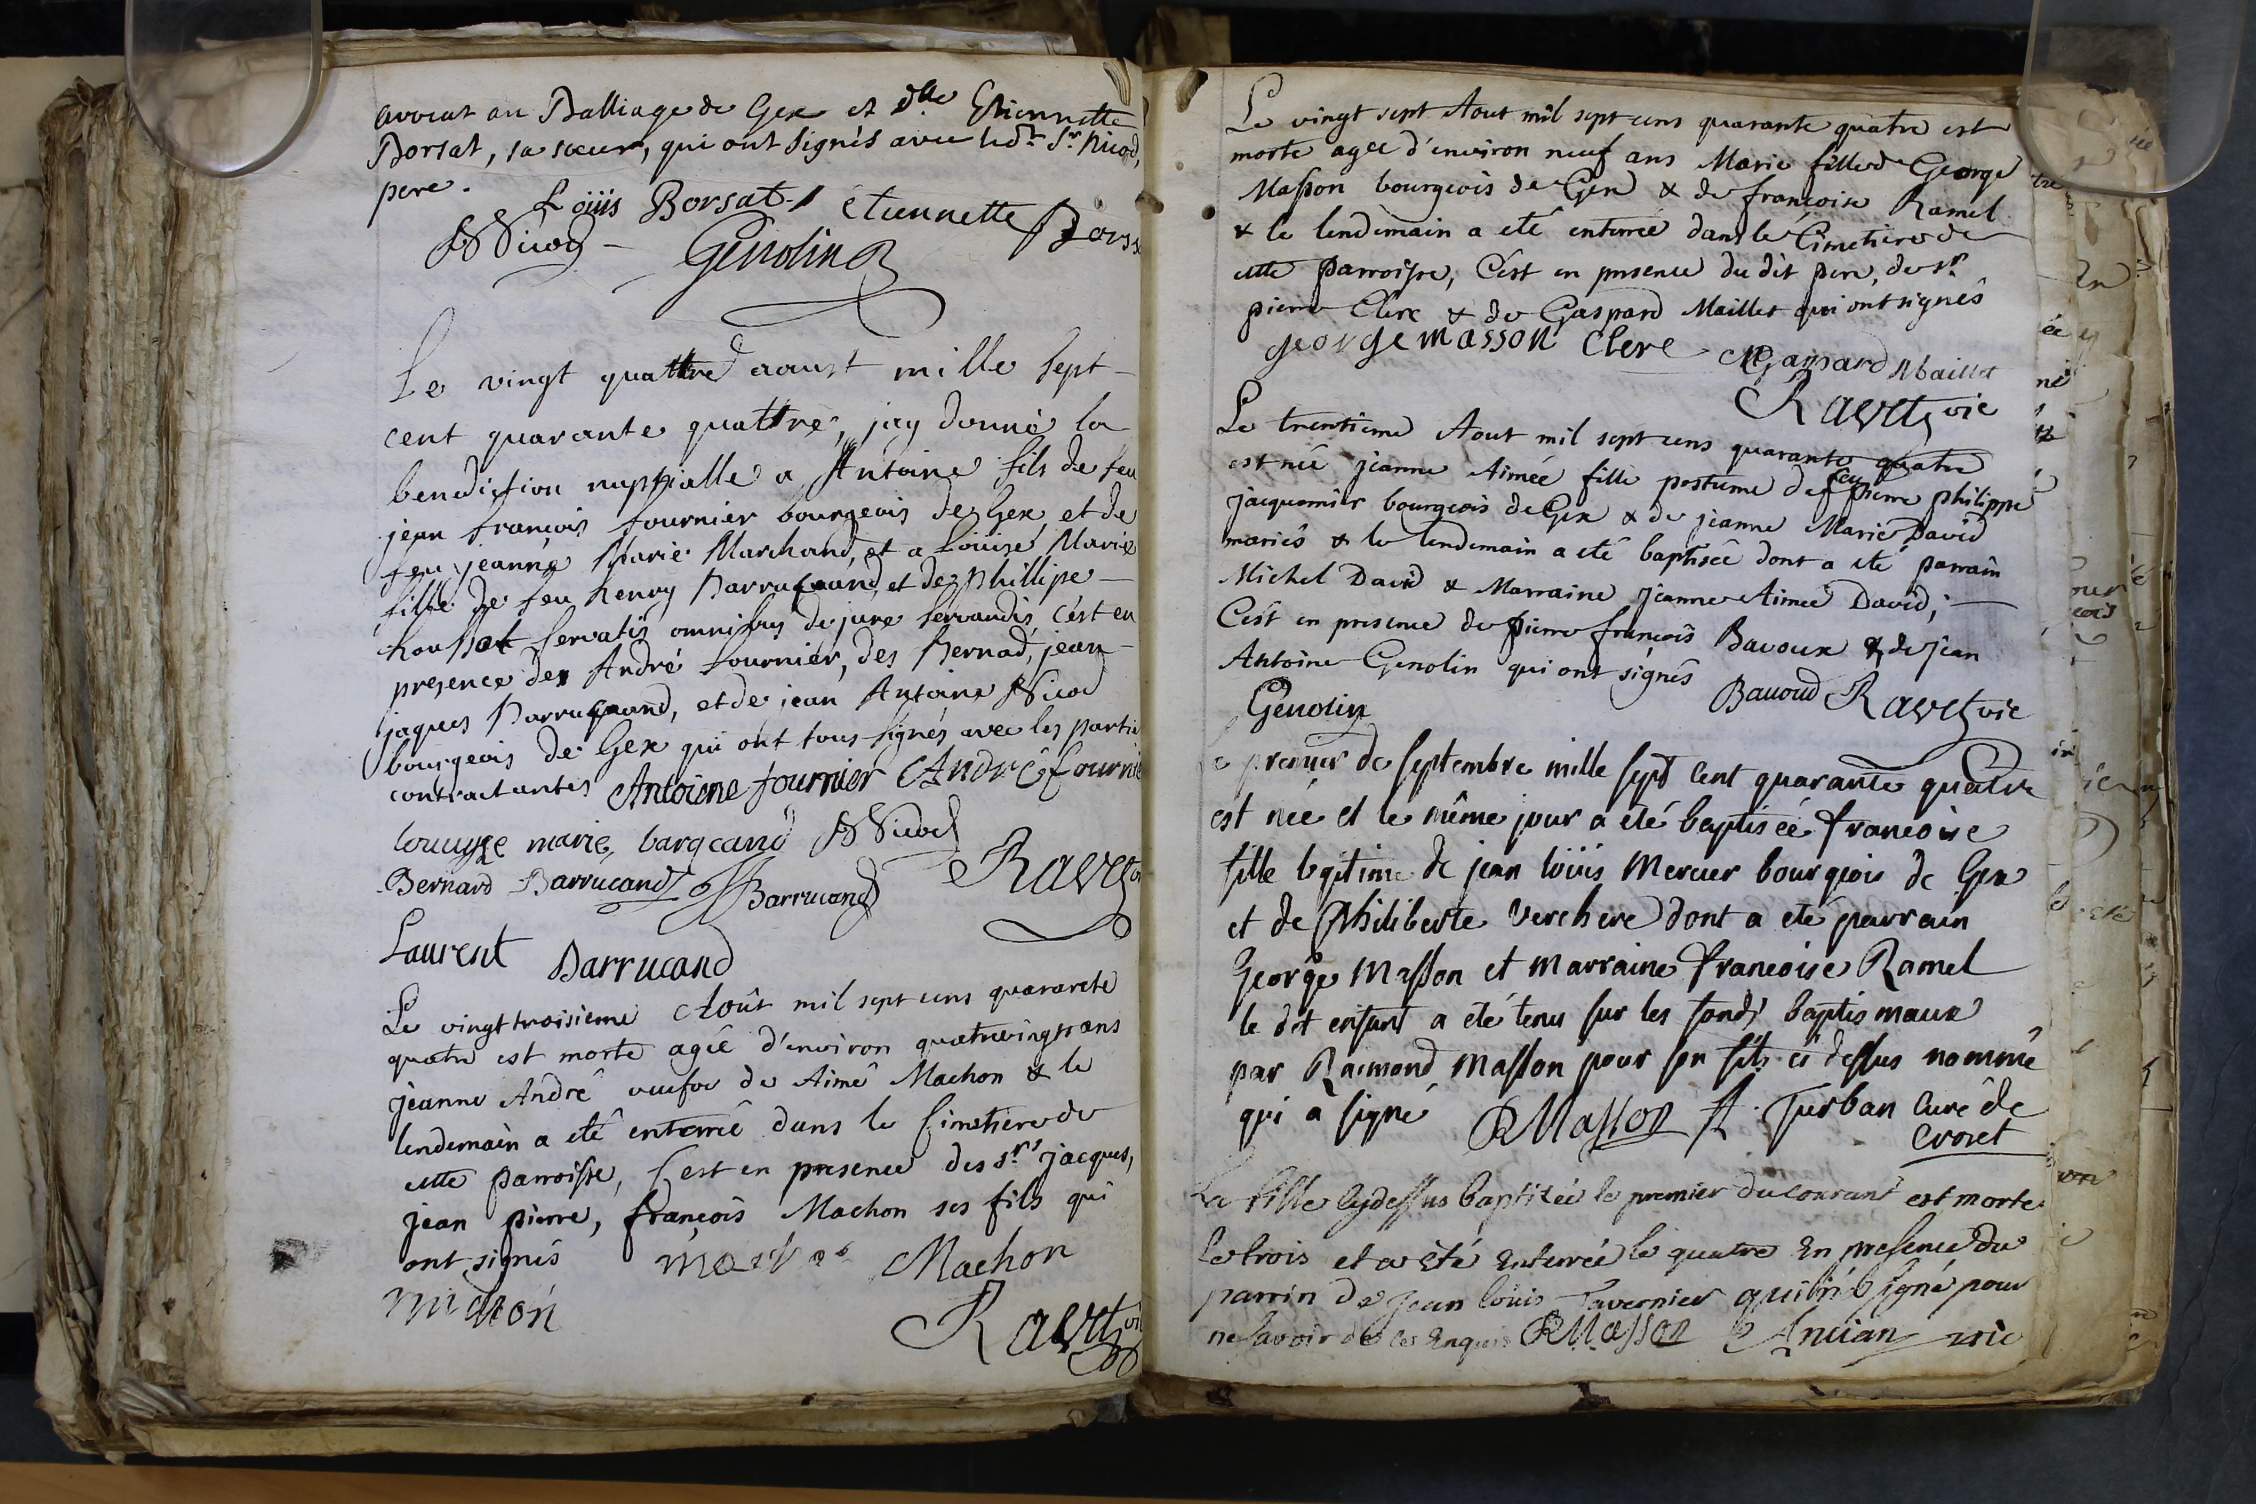 avocat au Balliage de Gex et dlle Etiennette
Borsat, sa sœur, qui ont signés avec led.t S.r Nicod,
pere.
Loüis Borsat étiennette Bors
Nicod Genolin
Le vingt quattre aoust mille sept
cent quarante quattre, jay donné la
benediction nuptialle a Antoine fils de feu
jean françois fournier bourgeois de Gex et de
feu jeanne Marie Marchand, et a Loüise Marie
fille de feu henry Barrucand, et de phillipe
servatis omnibus de jure servandis, c'est en
presence des André fournier, des Bernad, jean
jaques Barrucand, et de jean Antoine Nicod
bourgeois de Gex qui ont tous signés avec les partie
contractantes Antoiene fournier André fournie
louuyse marie barqcand Nicod
Bernard Barrucand Barrucand Ravet
Laurent Barrucand
Le vingt troisieme Août mil sept cens quarante
quatre est morte agée d'environ quatrevingt ans
jeanne André veufve de Aimé Machon & le
lendemain a eté enterrée dans le Cimetiere de
cette parroisse, C'est en presence des s.rs jacques,
jean pierre, françois Machon ses fils qui
ont signés Machon
machon
Ravet vi
Le vingt sept Aout mil sept cens quarante quatre est
morte agée d'environ neuf ans Marie fille de George
Masson bourgeois de Gex & de françoise Ramel
& le lendemain a eté enterrée dans le Cimetiere de
cette parroisse, C'est en presence du dit pere, de s.r
pierre Clerc & de Gaspard Maillet qui ont signés
george masson Clerc Gaspard Maillet
Ravet vic
Le trentieme Aout mil sept cens quarante quatre
est née jeanne Aimée fille postume de feu pierre philippe
jacquemier bourgeois de Gex & de jeanne Marie David
mariés & le lendemain a eté baptisée dont a eté parrain
Michel David & Marraine jeanne Aimée David;
C'est en presence de pierre françois Bavoux & de jean
Antoine Genolin qui ont signés
Genolin Bavoud Ravet vic
e premier de septembre mille sept cent quarante quatre
est née et le même jour a été baptisée francoise
fille legitime de jean loüis Mercier bourgeois de Gex
et de Philiberte Verchere dont a eté parrain
George Masson et marraine francoise Ramel
le dit enfant a eté tenu sur les fonds baptismaux
par Raimond Masson pour son fils ci dessus nommé
qui a signé RMasson Turban Curé de
Crozet
La fille cydessus baptizée le premier du courant est morte
le trois et a été Enterrée le quatre En presence du
parrin de Jean loüis Tavernier qui n'a signé pour
ne savoir de ce Enquis RMasson Ancian vic